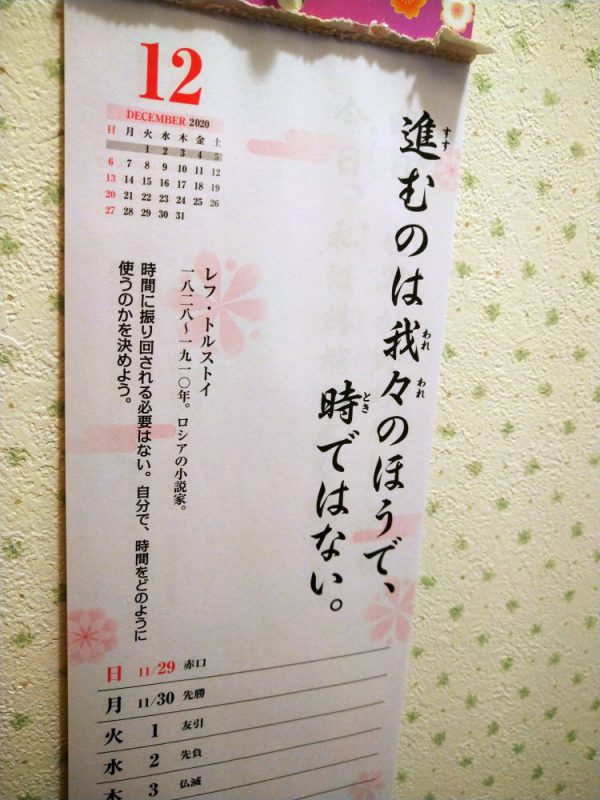 12
DECEMBER 2020
日 月 火 水 木 金 土
1 2 3 4 5
6 7 8 9 10 11 12
13 14 15 16 17 18 19
20 21 22 23 24 25 26
27 28 29 30 31
進むのは我々のほうで、
時ではない。
レフ・トルストイ
一八二八〜一九一〇年。ロシアの小説家。
時間に振り回される必要はない。自分で、時間をどのように
使うのかを決めよう。
日 11/29 赤口
月 11/30 先勝
火 1 友引
水 2 先負
木 3 仏滅